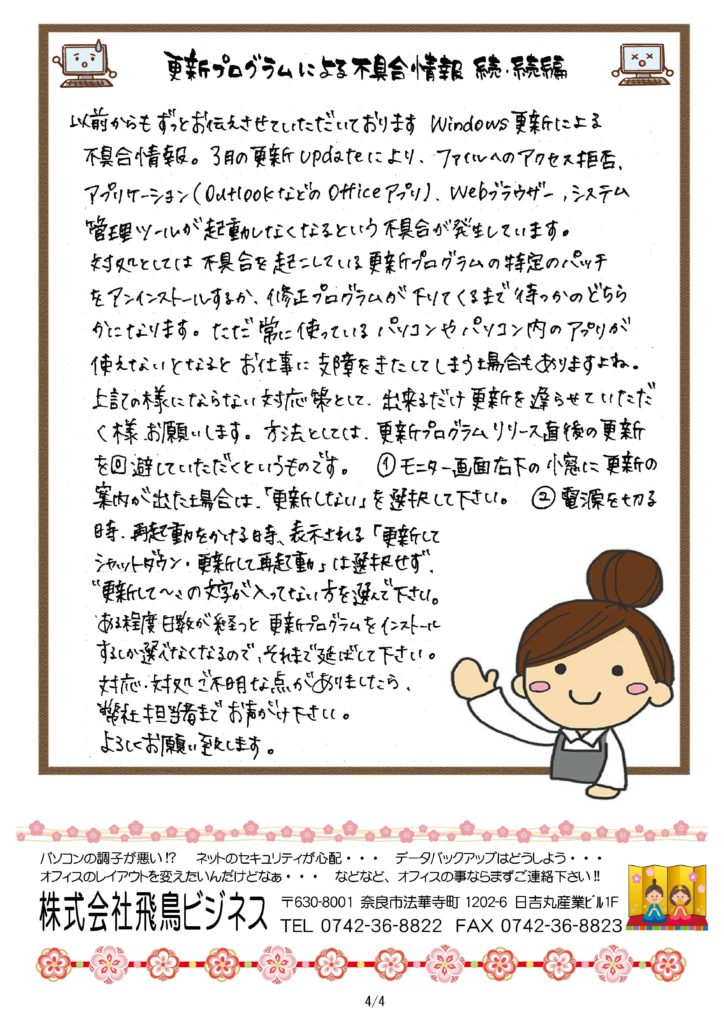 更新プログラムによる不具合情報 続・続編
以前からもずっとお伝えさせていただいております Windows更新による
不具合情報。3月の更新updateにより、ファイルへのアクセス拒否、
アプリケーション(OutlookなどのOfficeアプリ)、Webブラウザー,システム
管理ツールが起動しなくなるという不具合が発生しています。
対処としては不具合を起こしている更新プログラムの特定のパッチ
をアンインストールするか、修正プログラムが下りてくるまで待つかのどちら
かになります。ただ常に使っているパソコンやパソコン内のアプリが
使えないとなるとお仕事に支障をきたしてしまう場合もありますよね。
上記の様にならない対応策として、出来るだけ更新を遅らせていただ
く様お願いします。方法としては、更新プログラムリリース直後の更新
を回避していただくというものです。 ①モニター画面右下の小窓に更新の
案内が出た場合は、「更新しない」を選択して下さい。 ②電源を切る
時、再起動をかける時、表示される「更新して
シャットダウン・更新して再起動」は選択せず、
"更新して〜"の文字が入ってない方を選んで下さい。
ある程度日数が経つと更新プログラムをインストール
するしか選べなくなるので、それまで延ばして下さい。
対応・対処ご不明な点がありましたら、
弊社担当者までお声がけ下さい。
よろしくお願い致します。
パソコンの調子が悪い!? ネットのセキュリティが心配・・・ データバックアップはどうしよう・・・
オフィスのレイアウトを変えたいんだけどなぁ・・・ などなど、オフィスの事ならまずご連絡下さい!!
株式会社飛鳥ビジネス 〒630-8001 奈良市法華寺町 1202-6 日吉丸産業ビル1F
TEL 0742-36-8822 FAX 0742-36-8823
4/4